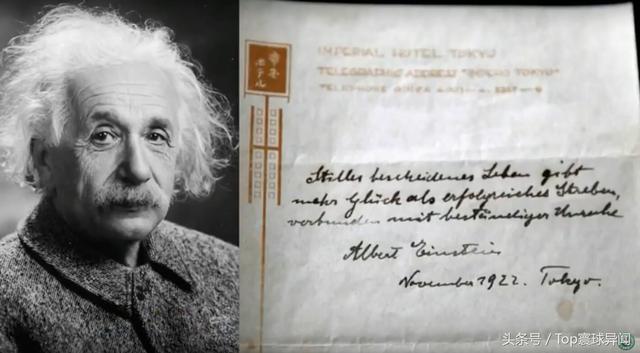 IMPERIAL HOTEL TOKYO
TELEGRAPHIC ADDRESS "IMPEHO TOKYO"
TELEPHONE GINZA
ホテル
Stilles bescheidenes Leben gibt
mehr Glück als erfolgreiches Streben,
verbunden mit beständiger Unruhe
Albert Einstein
November 1922. Tokyo.
头条号 / Top寰球异闻